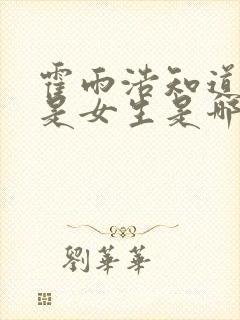 霍雨浩知道
是女生是哪
劉華華